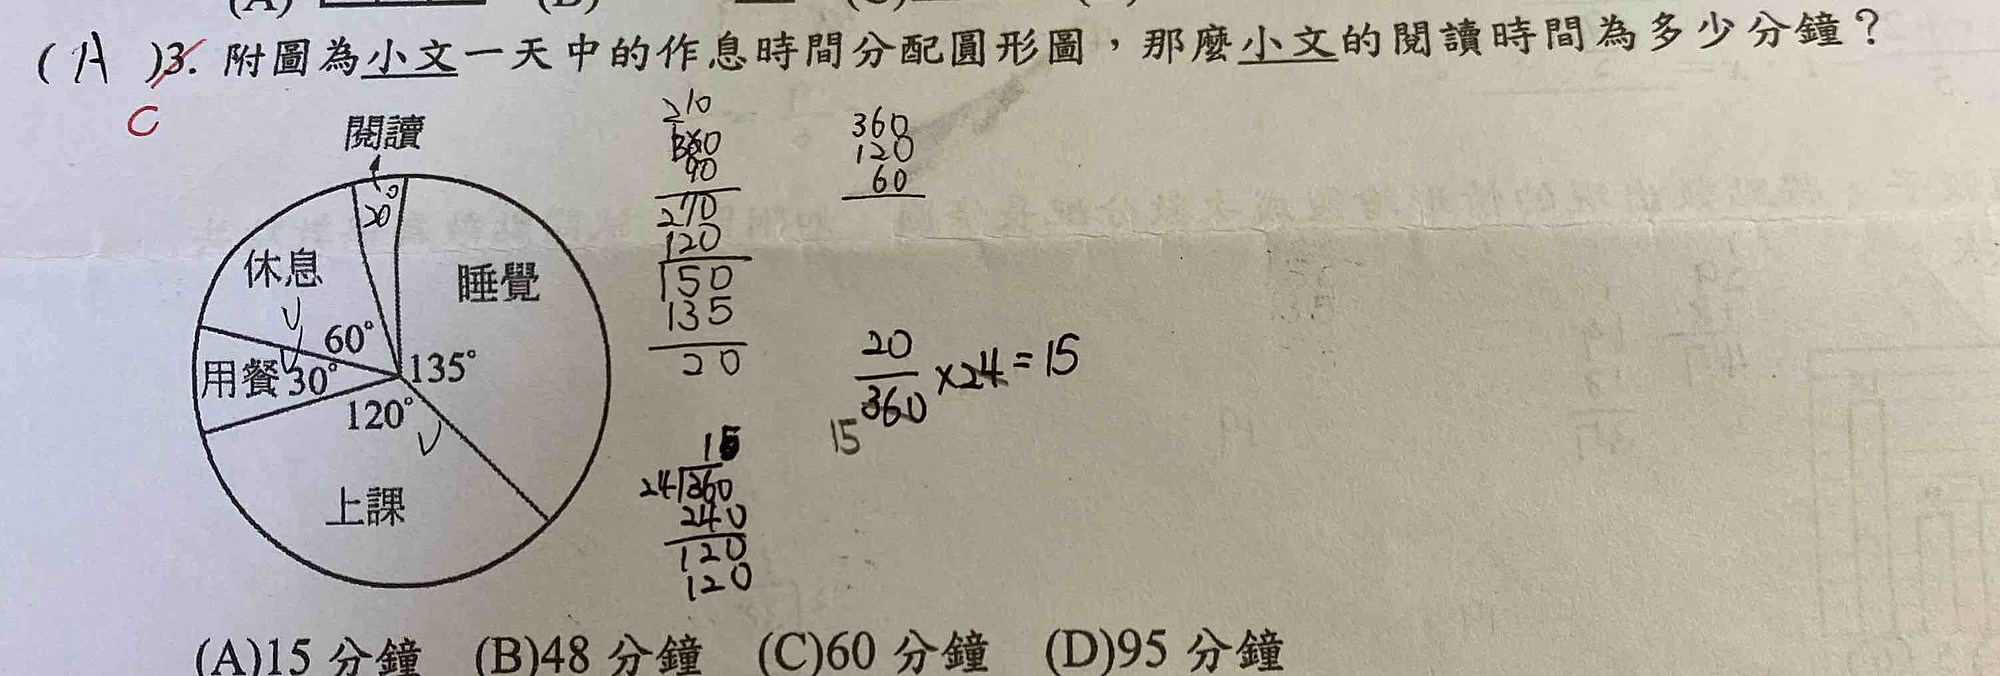 ( A )3. 附圖為小文一天中的作息時間分配圓形圖，那麼小文的閱讀時間為多少分鐘？
C
閱讀
20°
休息
睡覺
60°
用餐 30°
135°
120°
上課
210
360
90
270
120
150
135
20
360
120
60
20/360 ×24=15
15
15
24 360
240
120
120
(A)15 分鐘 (B)48 分鐘 (C)60 分鐘 (D)95 分鐘